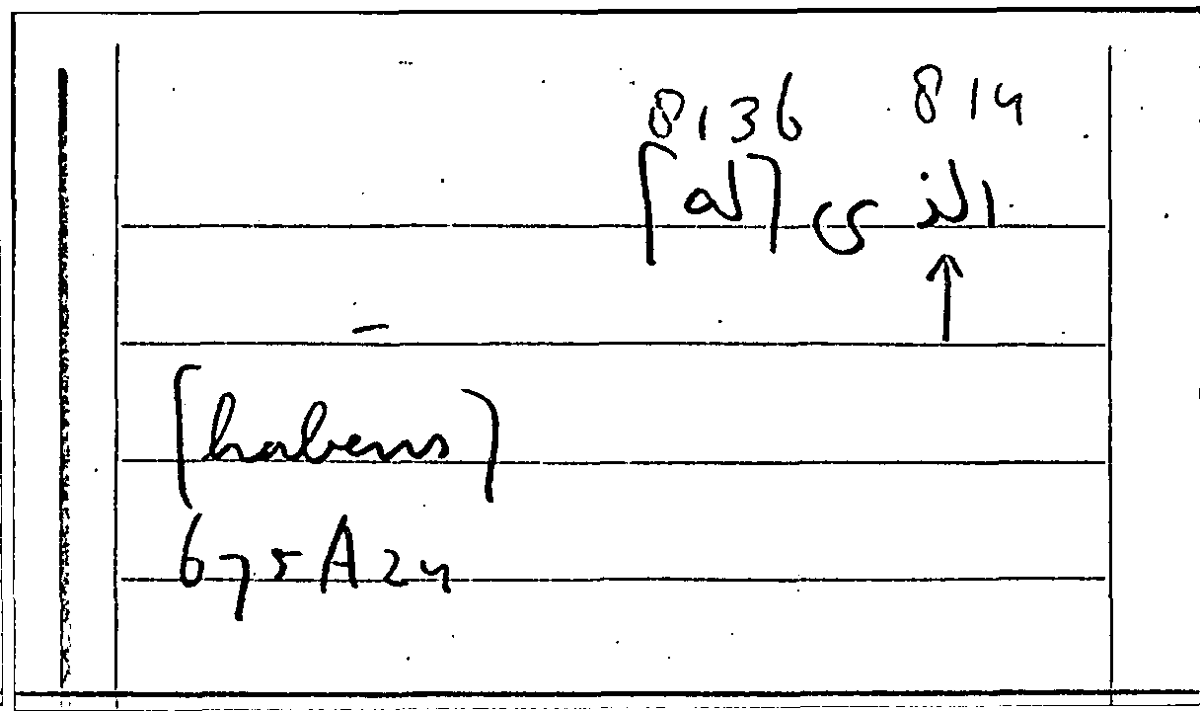 8136 814
الذى [له]
↑
–
[habens]
675A24